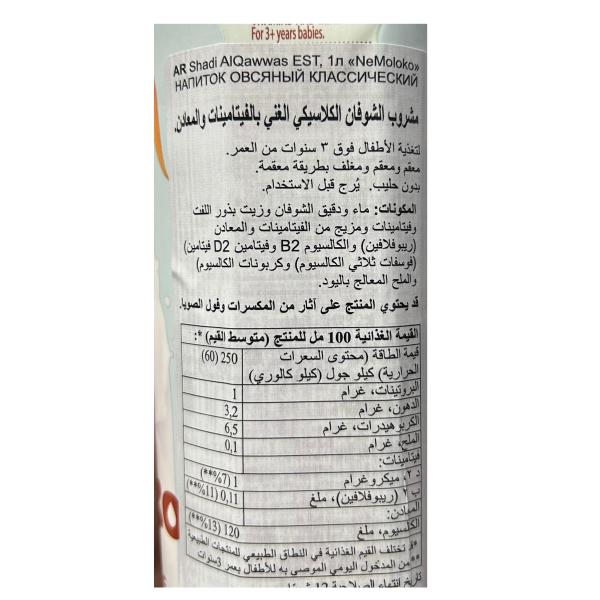 For 3+ years babies.
AR Shadi AlQawwas EST, 1л «NeMoloko»
НАПИТОК ОВСЯНЫЙ КЛАССИЧЕСКИЙ
مشروب الشوفان الكلاسيكي الغني بالفيتامينات والمعادن.
لتغذية الأطفال فوق ٣ سنوات من العمر.
معقم ومعقم ومغلف بطريقة معقمة.
بدون حليب. يُرج قبل الاستخدام.
المكونات: ماء ودقيق الشوفان وزيت بذور اللفت
وفيتامينات ومزيج من الفيتامينات والمعادن
(ريبوفلافين) والكالسيوم B2 وفيتامين D2 فيتامين)
(فوسفات ثلاثي الكالسيوم) وكربونات الكالسيوم)
والملح المعالج باليود.
قد يحتوي المنتج على آثار من المكسرات وفول الصويا.
القيمة الغذائية 100 مل للمنتج (متوسط القيم) *:
قيمة الطاقة (محتوى السعرات 250 (60)
الحرارية) كيلو جول (كيلو كالوري)
البروتينات، غرام 1
الدهون، غرام 3,2
الكربوهيدرات، غرام 6,5
الملح، غرام 0,1
فيتامينات:
د ٢، ميكروغرام 1 (7%**)
ب ٢ (ريبوفلافين)، ملغ 0,11 (11%**)
المعادن:
الكالسيوم، ملغ 120 (13%**)
*قد تختلف القيم الغذائية في النطاق الطبيعي للمنتجات الطبيعية
**من المدخول اليومي الموصى به للأطفال بعمر 3سنوات
تاريخ انتهاء الصلاحية 12